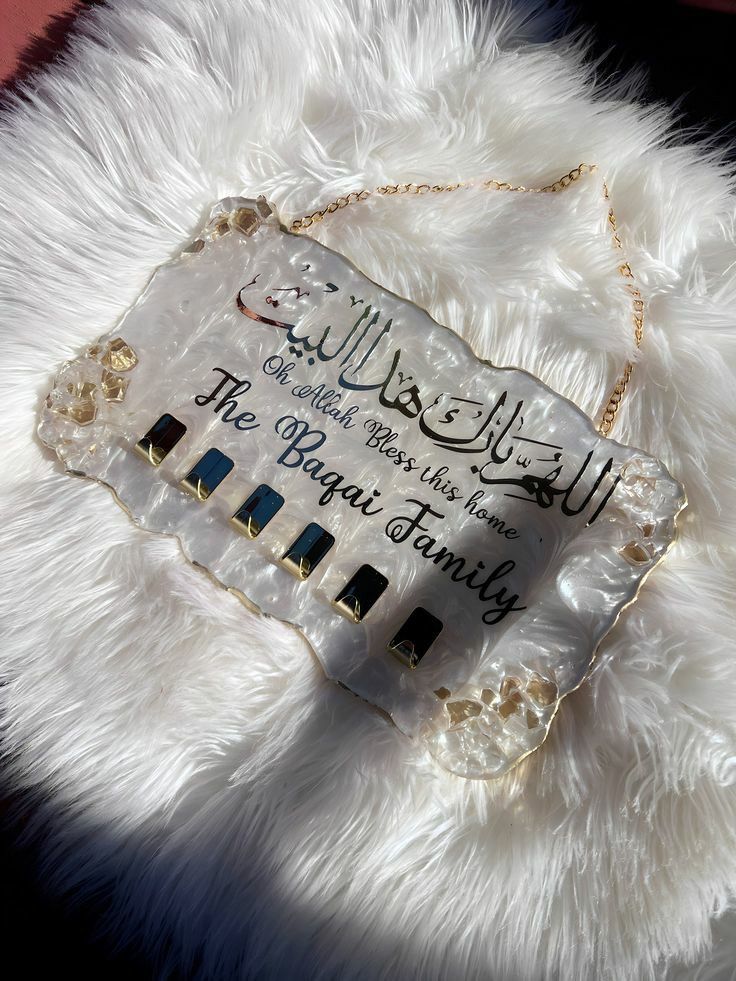 اللهم بارك هذا البيت
Oh Allah Bless this home
The Baqai Family